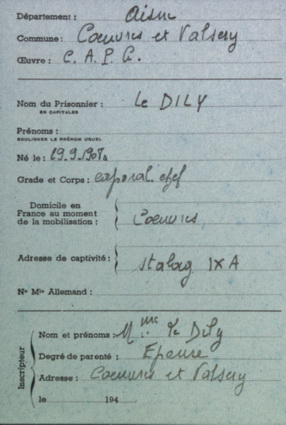 Département : Aisne
Commune : Coeuvres et Valsery
Œuvre : C. A. P. G.
Nom du Prisonnier : Le DILY
EN CAPITALES
Prénoms :
SOULIGNER LE PRÉNOM USUEL
Né le : 19.9.1907
Grade et Corps : caporal chef
Domicile en
France au moment
de la mobilisation : Coeuvres
Adresse de captivité : Stalag IX A
N° Mle Allemand :
Inscripteur
Nom et prénoms : Mme Le Dily
Degré de parenté : Epouse
Adresse : Coeuvres et Valsery
le 194